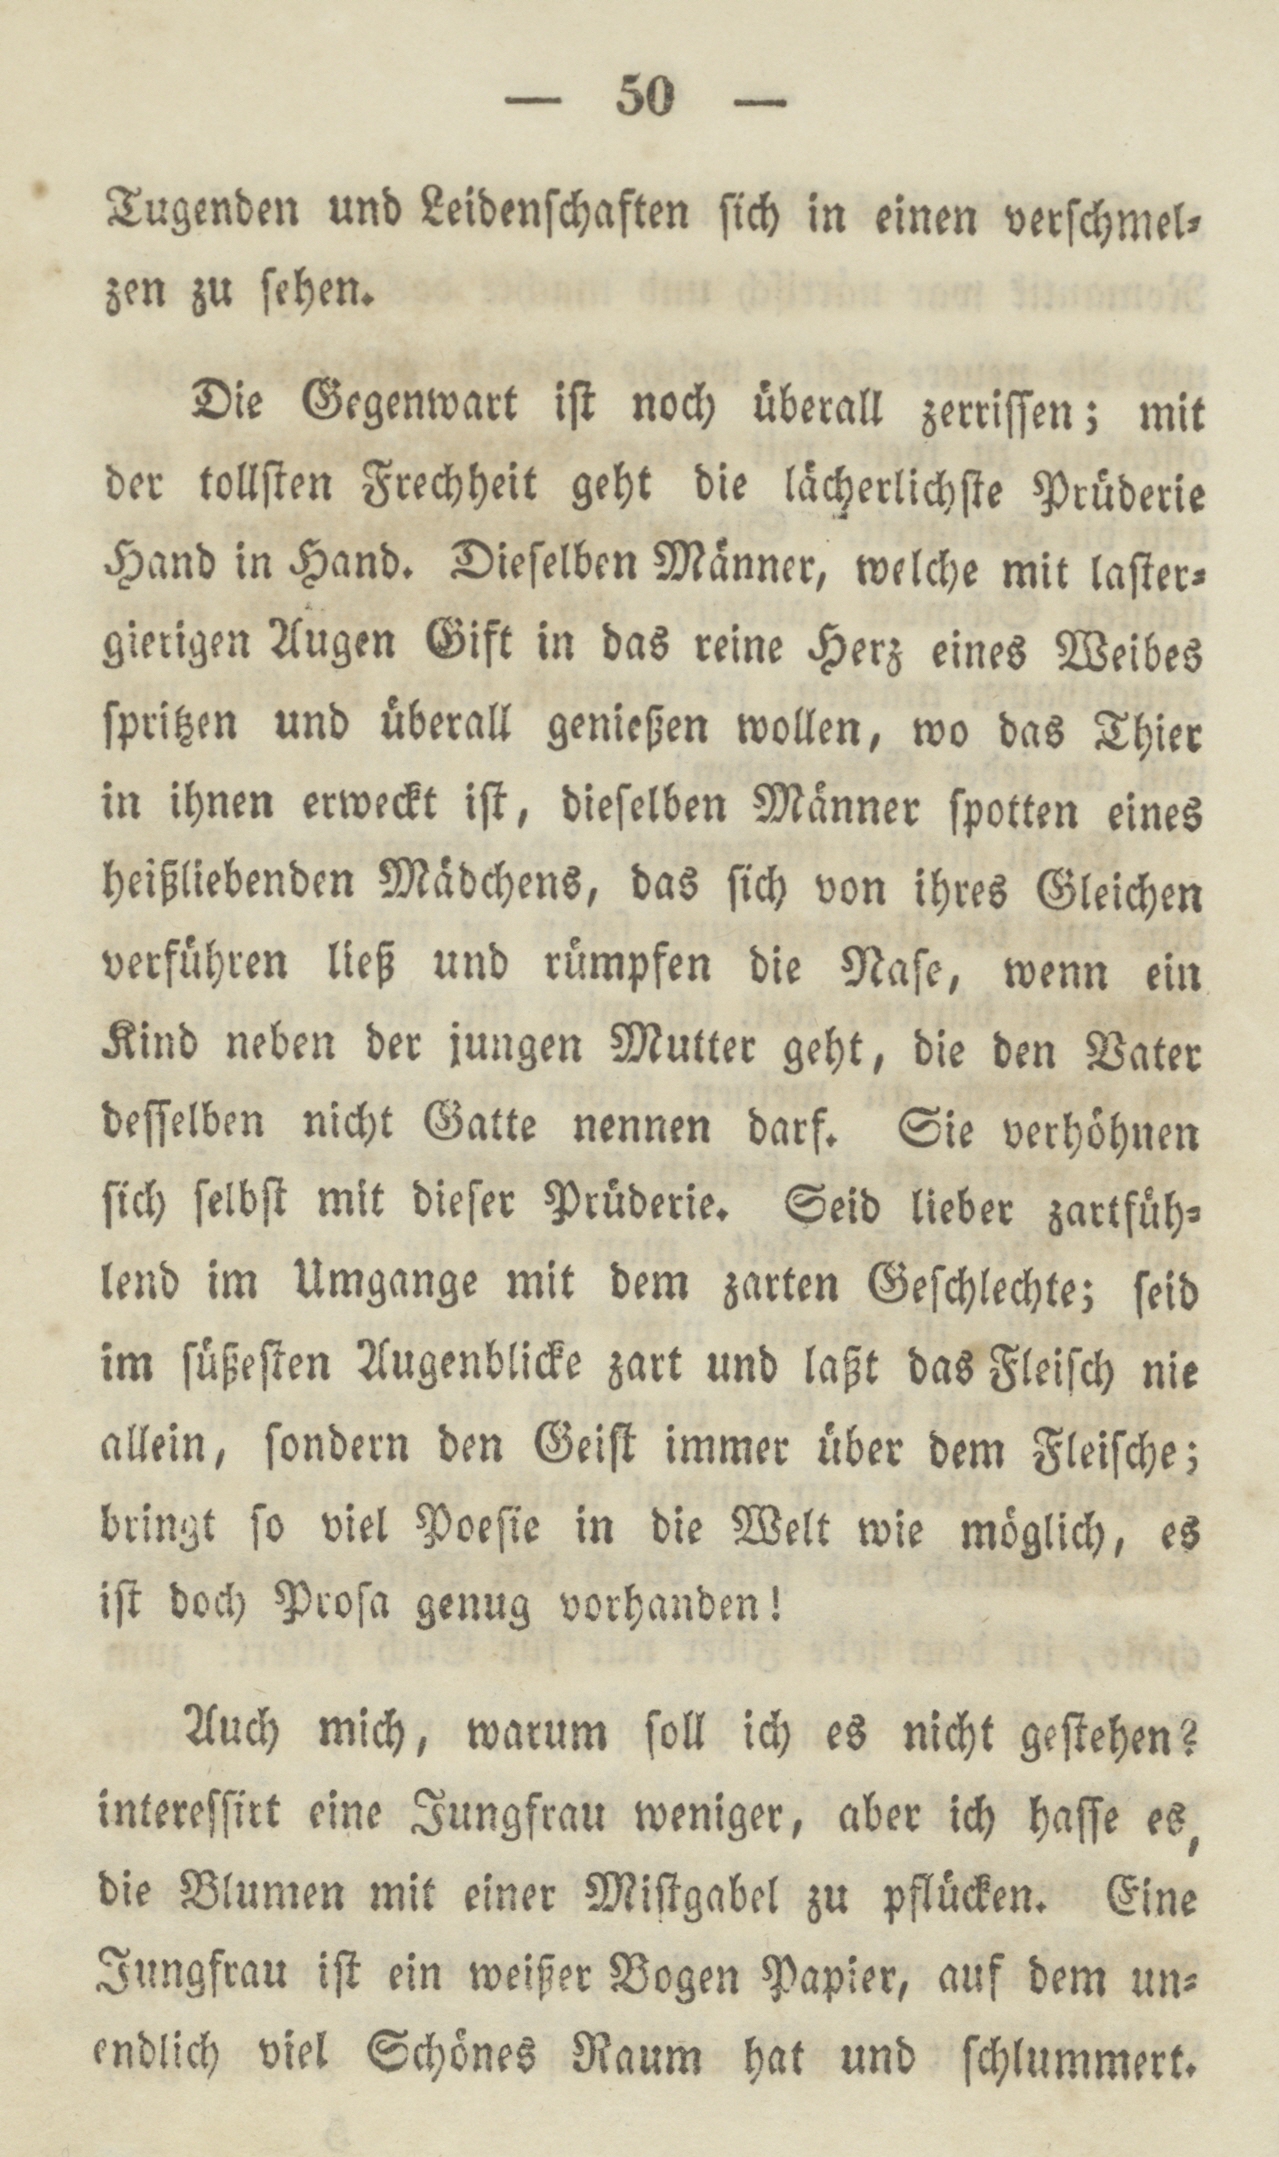 — 50 —
Tugenden und Leidenschaften sich in einen verschmel-
zen zu sehen.
Die Gegenwart ist noch überall zerrissen; mit
der tollsten Frechheit geht die lächerlichste Prüderie
Hand in Hand. Dieselben Männer, welche mit laster-
gierigen Augen Gift in das reine Herz eines Weibes
spritzen und überall genießen wollen, wo das Thier
in ihnen erweckt ist, dieselben Männer spotten eines
heißliebenden Mädchens, das sich von ihres Gleichen
verführen ließ und rümpfen die Nase, wenn ein
Kind neben der jungen Mutter geht, die den Vater
desselben nicht Gatte nennen darf. Sie verhöhnen
sich selbst mit dieser Prüderie. Seid lieber zartfüh-
lend im Umgange mit dem zarten Geschlechte; seid
im süßesten Augenblicke zart und laßt das Fleisch nie
allein, sondern den Geist immer über dem Fleische;
bringt so viel Poesie in die Welt wie möglich, es
ist doch Prosa genug vorhanden!
Auch mich, warum soll ich es nicht gestehen?
interessirt eine Jungfrau weniger, aber ich hasse es,
die Blumen mit einer Mistgabel zu pflücken. Eine
Jungfrau ist ein weißer Bogen Papier, auf dem un-
endlich viel Schönes Raum hat und schlummert.